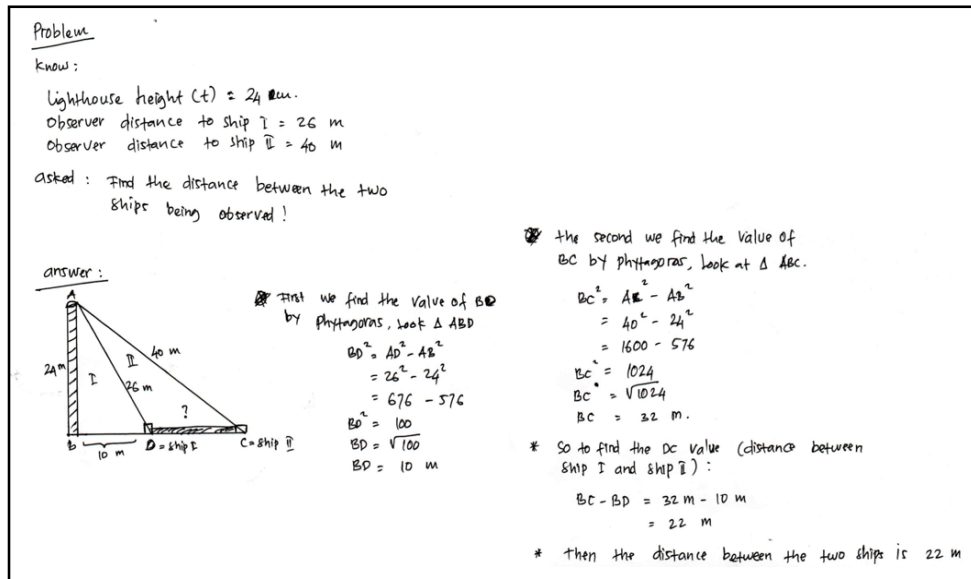 Problem
Know :
Lighthouse height (t) = 24 m.
Observer distance to ship I = 26 m
Observer distance to ship II = 40 m
asked : Find the distance between the two
ships being observed !
answer :
A
24 m
I
II
40 m
26 m
?
B
D = ship I
C = ship II
10 m
First we find the value of BD
by phytagoras, Look Δ ABD
BD² = AD² - AB²
= 26² - 24²
= 676 - 576
BD² = 100
BD = √100
BD = 10 m
the second we find the value of
BC by phytagoras, Look at Δ ABC.
BC² = AC² - AB²
= 40² - 24²
= 1600 - 576
BC² = 1024
BC = √1024
BC = 32 m.
* So to find the DC value (distance between
ship I and ship II) :
BC - BD = 32 m - 10 m
= 22 m
* then the distance between the two ships is 22 m